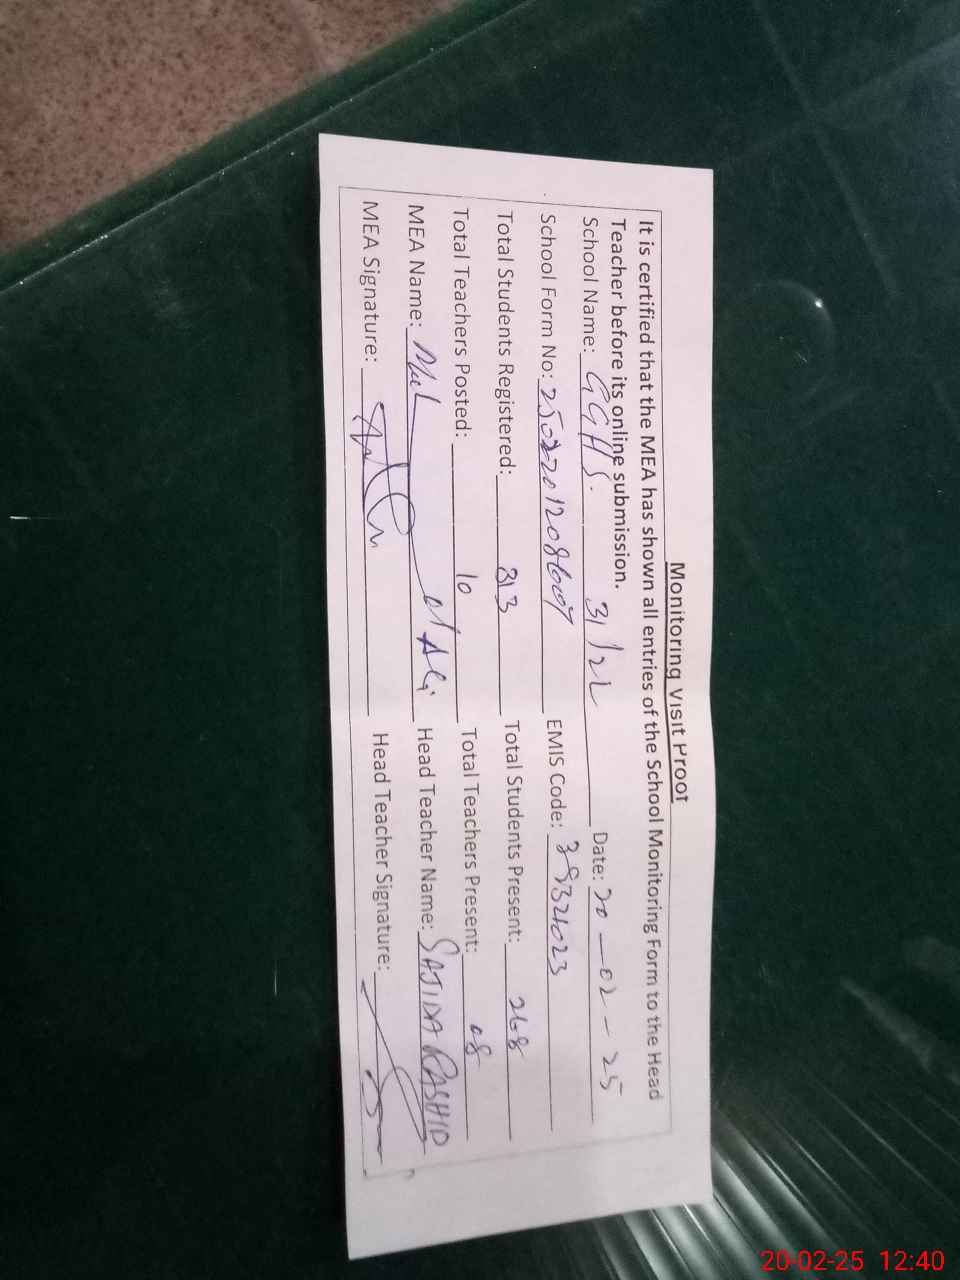 Monitoring Visit Proof
It is certified that the MEA has shown all entries of the School Monitoring Form to the Head
Teacher before its online submission.
School Name: GGHS. 31/2L Date: 20-02-25
School Form No: EMIS Code:
Total Students Registered: 313 Total Students Present: 268
Total Teachers Posted: 10 Total Teachers Present: 08
MEA Name: Head Teacher Name: SAJIDA RASHID
MEA Signature: Head Teacher Signature:
20-02-25 12:40